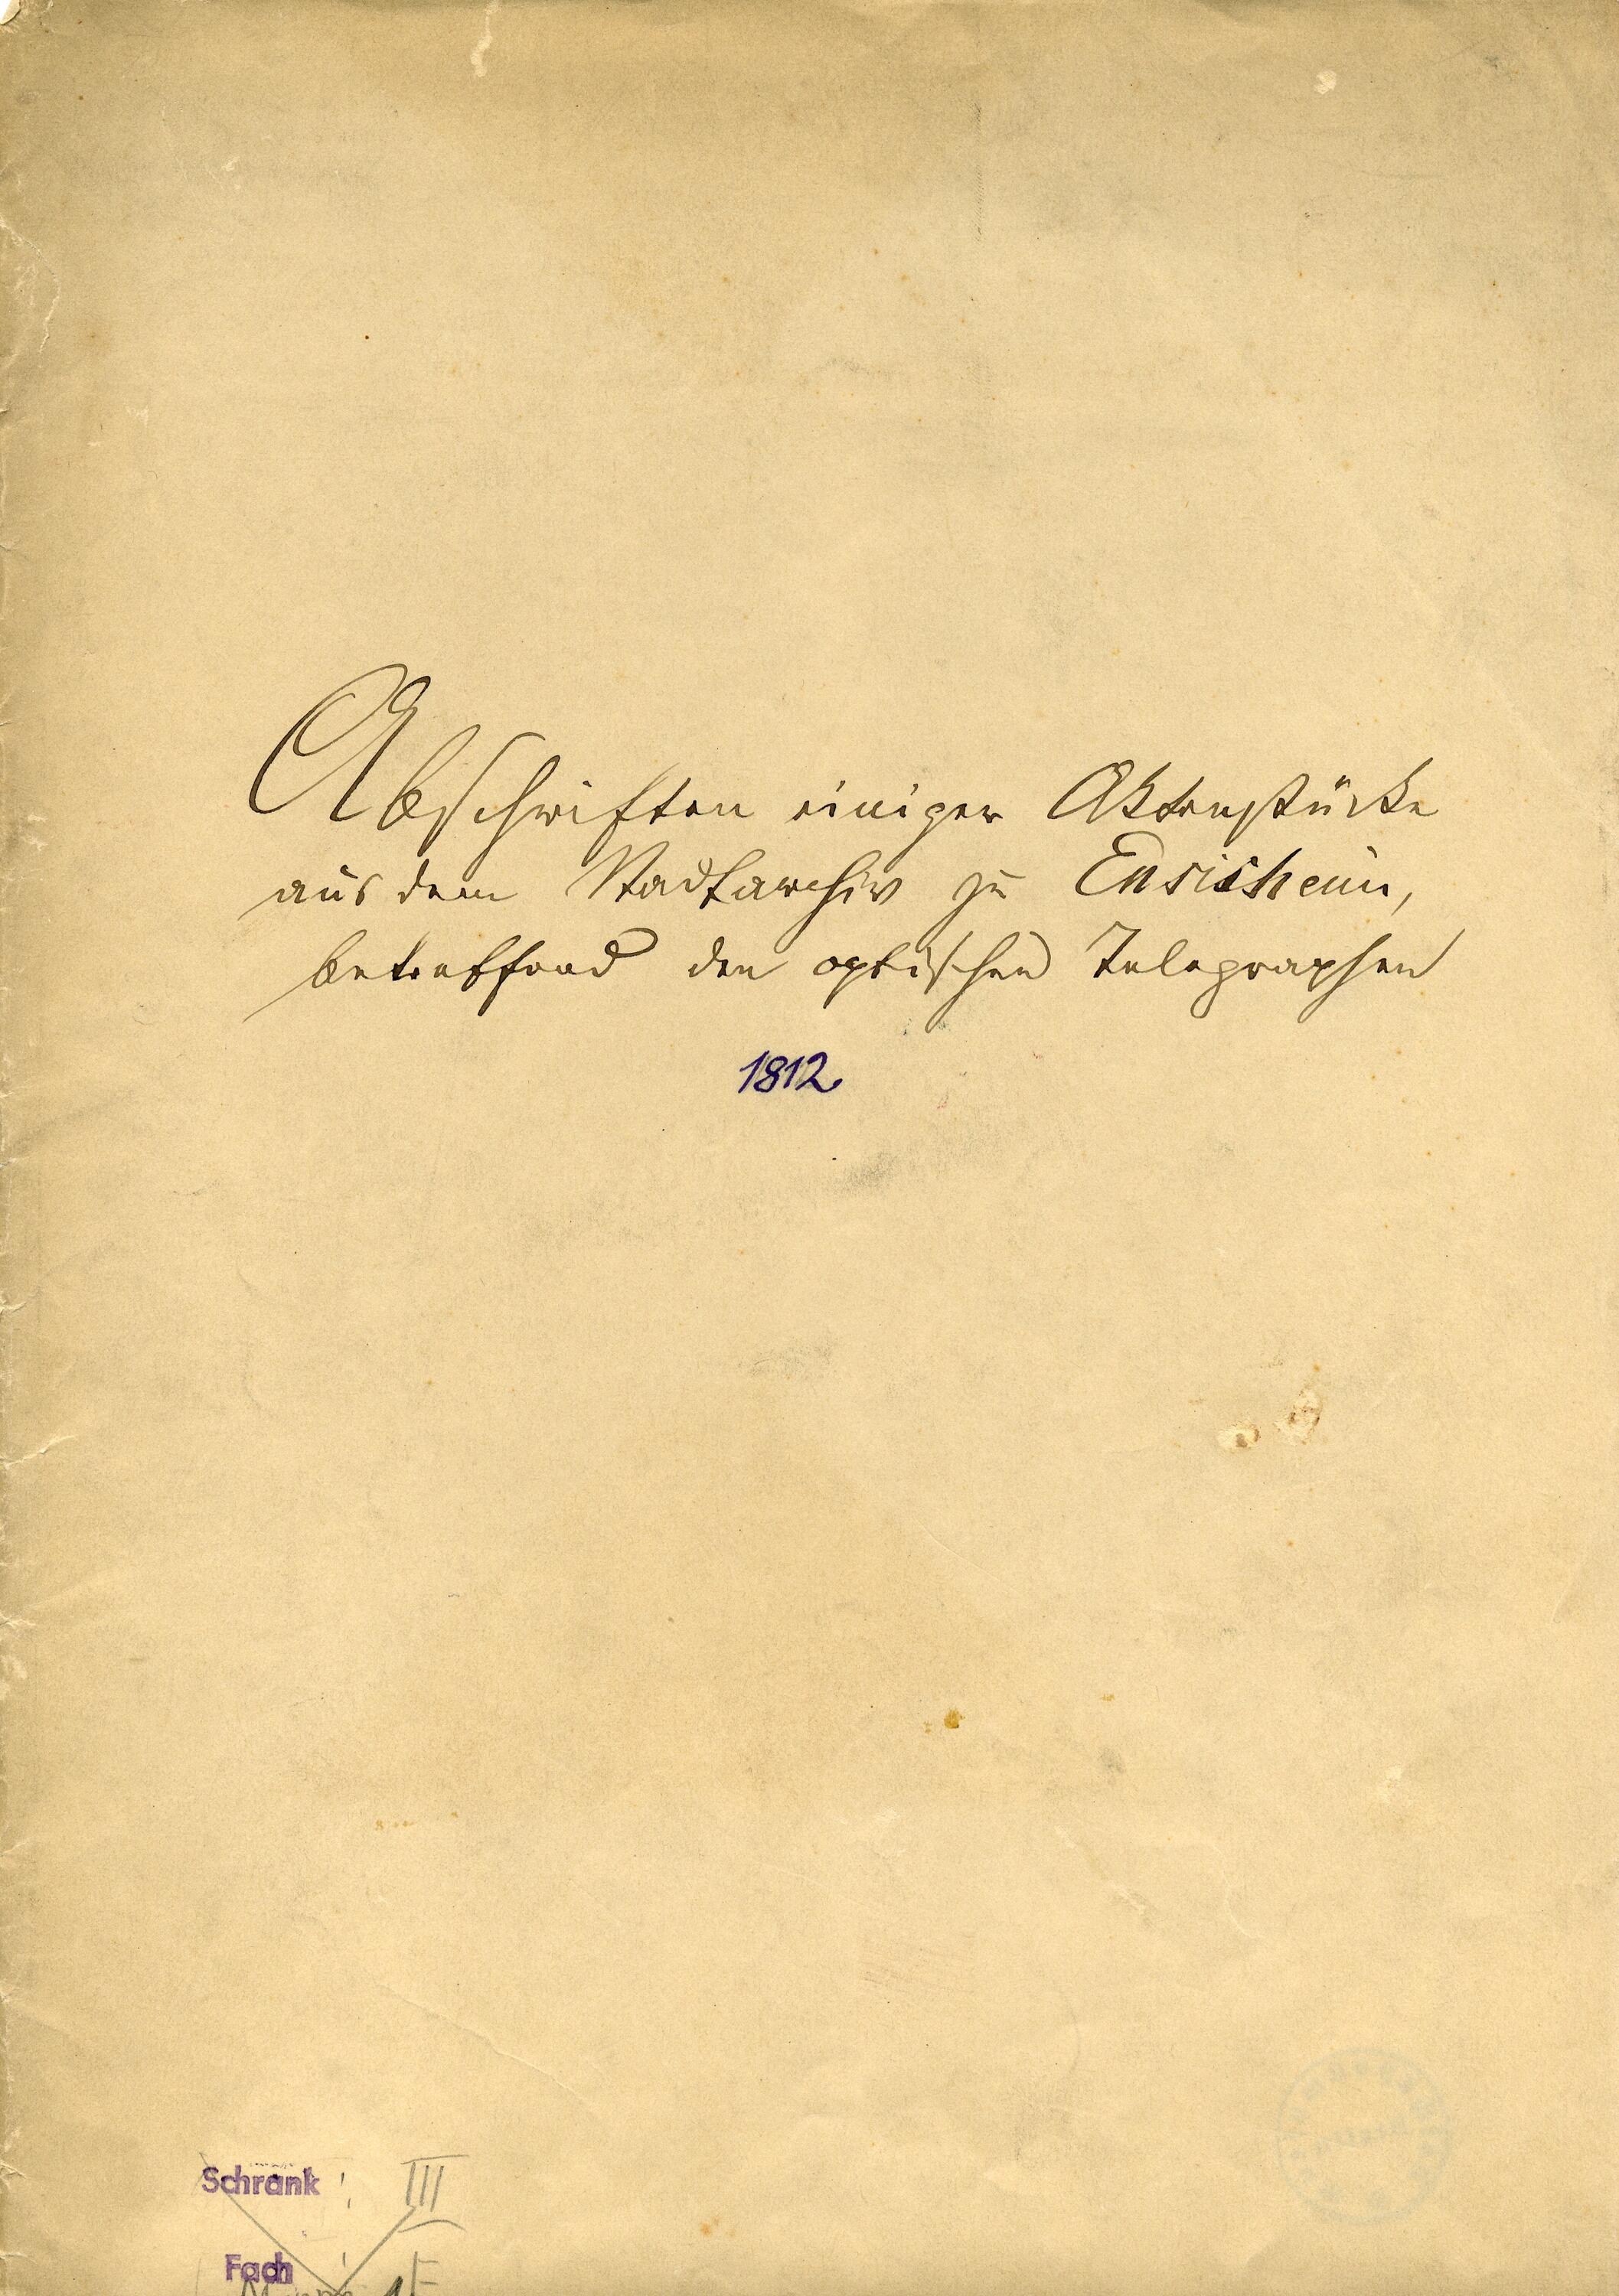 Abschriften einiger Aktenstücke
aus dem Stadtarchiv zu Ensisheim,
betreffend den optischen Telegraphen
1812.
Schrank : III
Fach :